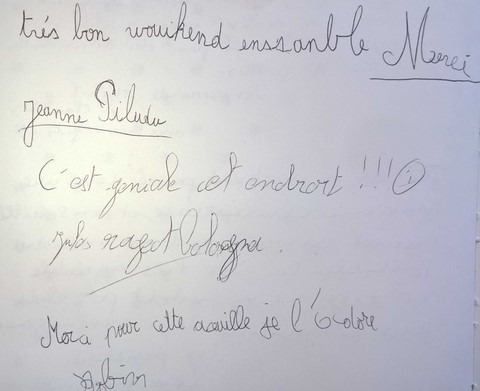 très bon wouikend enssanble Merci
Jeanne Piludu
C'est geniale cet endrort !!!
Jules ragot bologna.
Merci pour cette acuille je l'adore
Robin